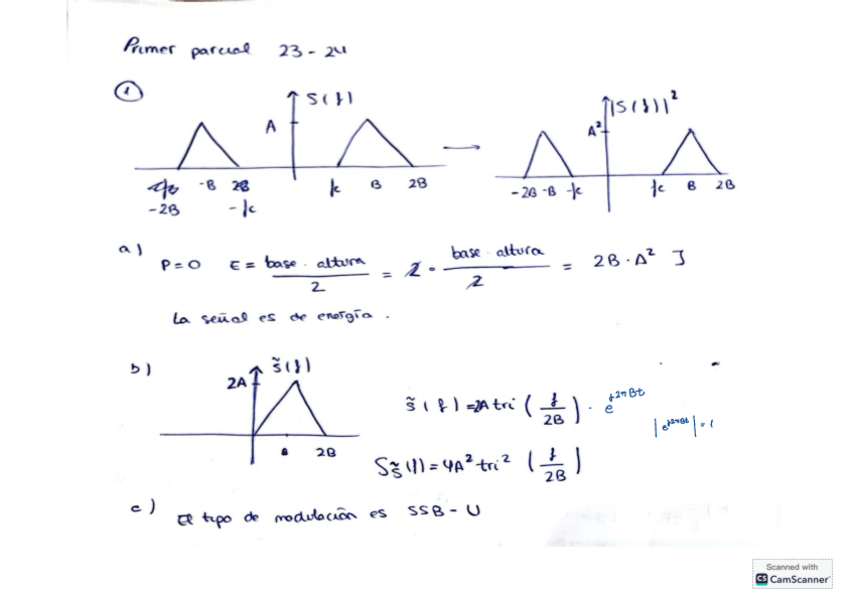 Primer parcial 23-24
①
S(f)
A
-2B -B 2B -fc fc B 2B
|S(f)|²
A²
-2B -B -fc fc B 2B
a)
P=0 E = base · altura / 2 = 2 · base · altura / 2 = 2B · A² J
La señal es de energía.
b)
s̃(f)
2A
B 2B
s̃(f) = 2A tri (f/2B) · e^{j2πBt}
|e^{j2πBt}| = 1
S_s̃(f) = 4A² tri² (f/2B)
c) El tipo de modulación es SSB-U
Scanned with
CS CamScanner